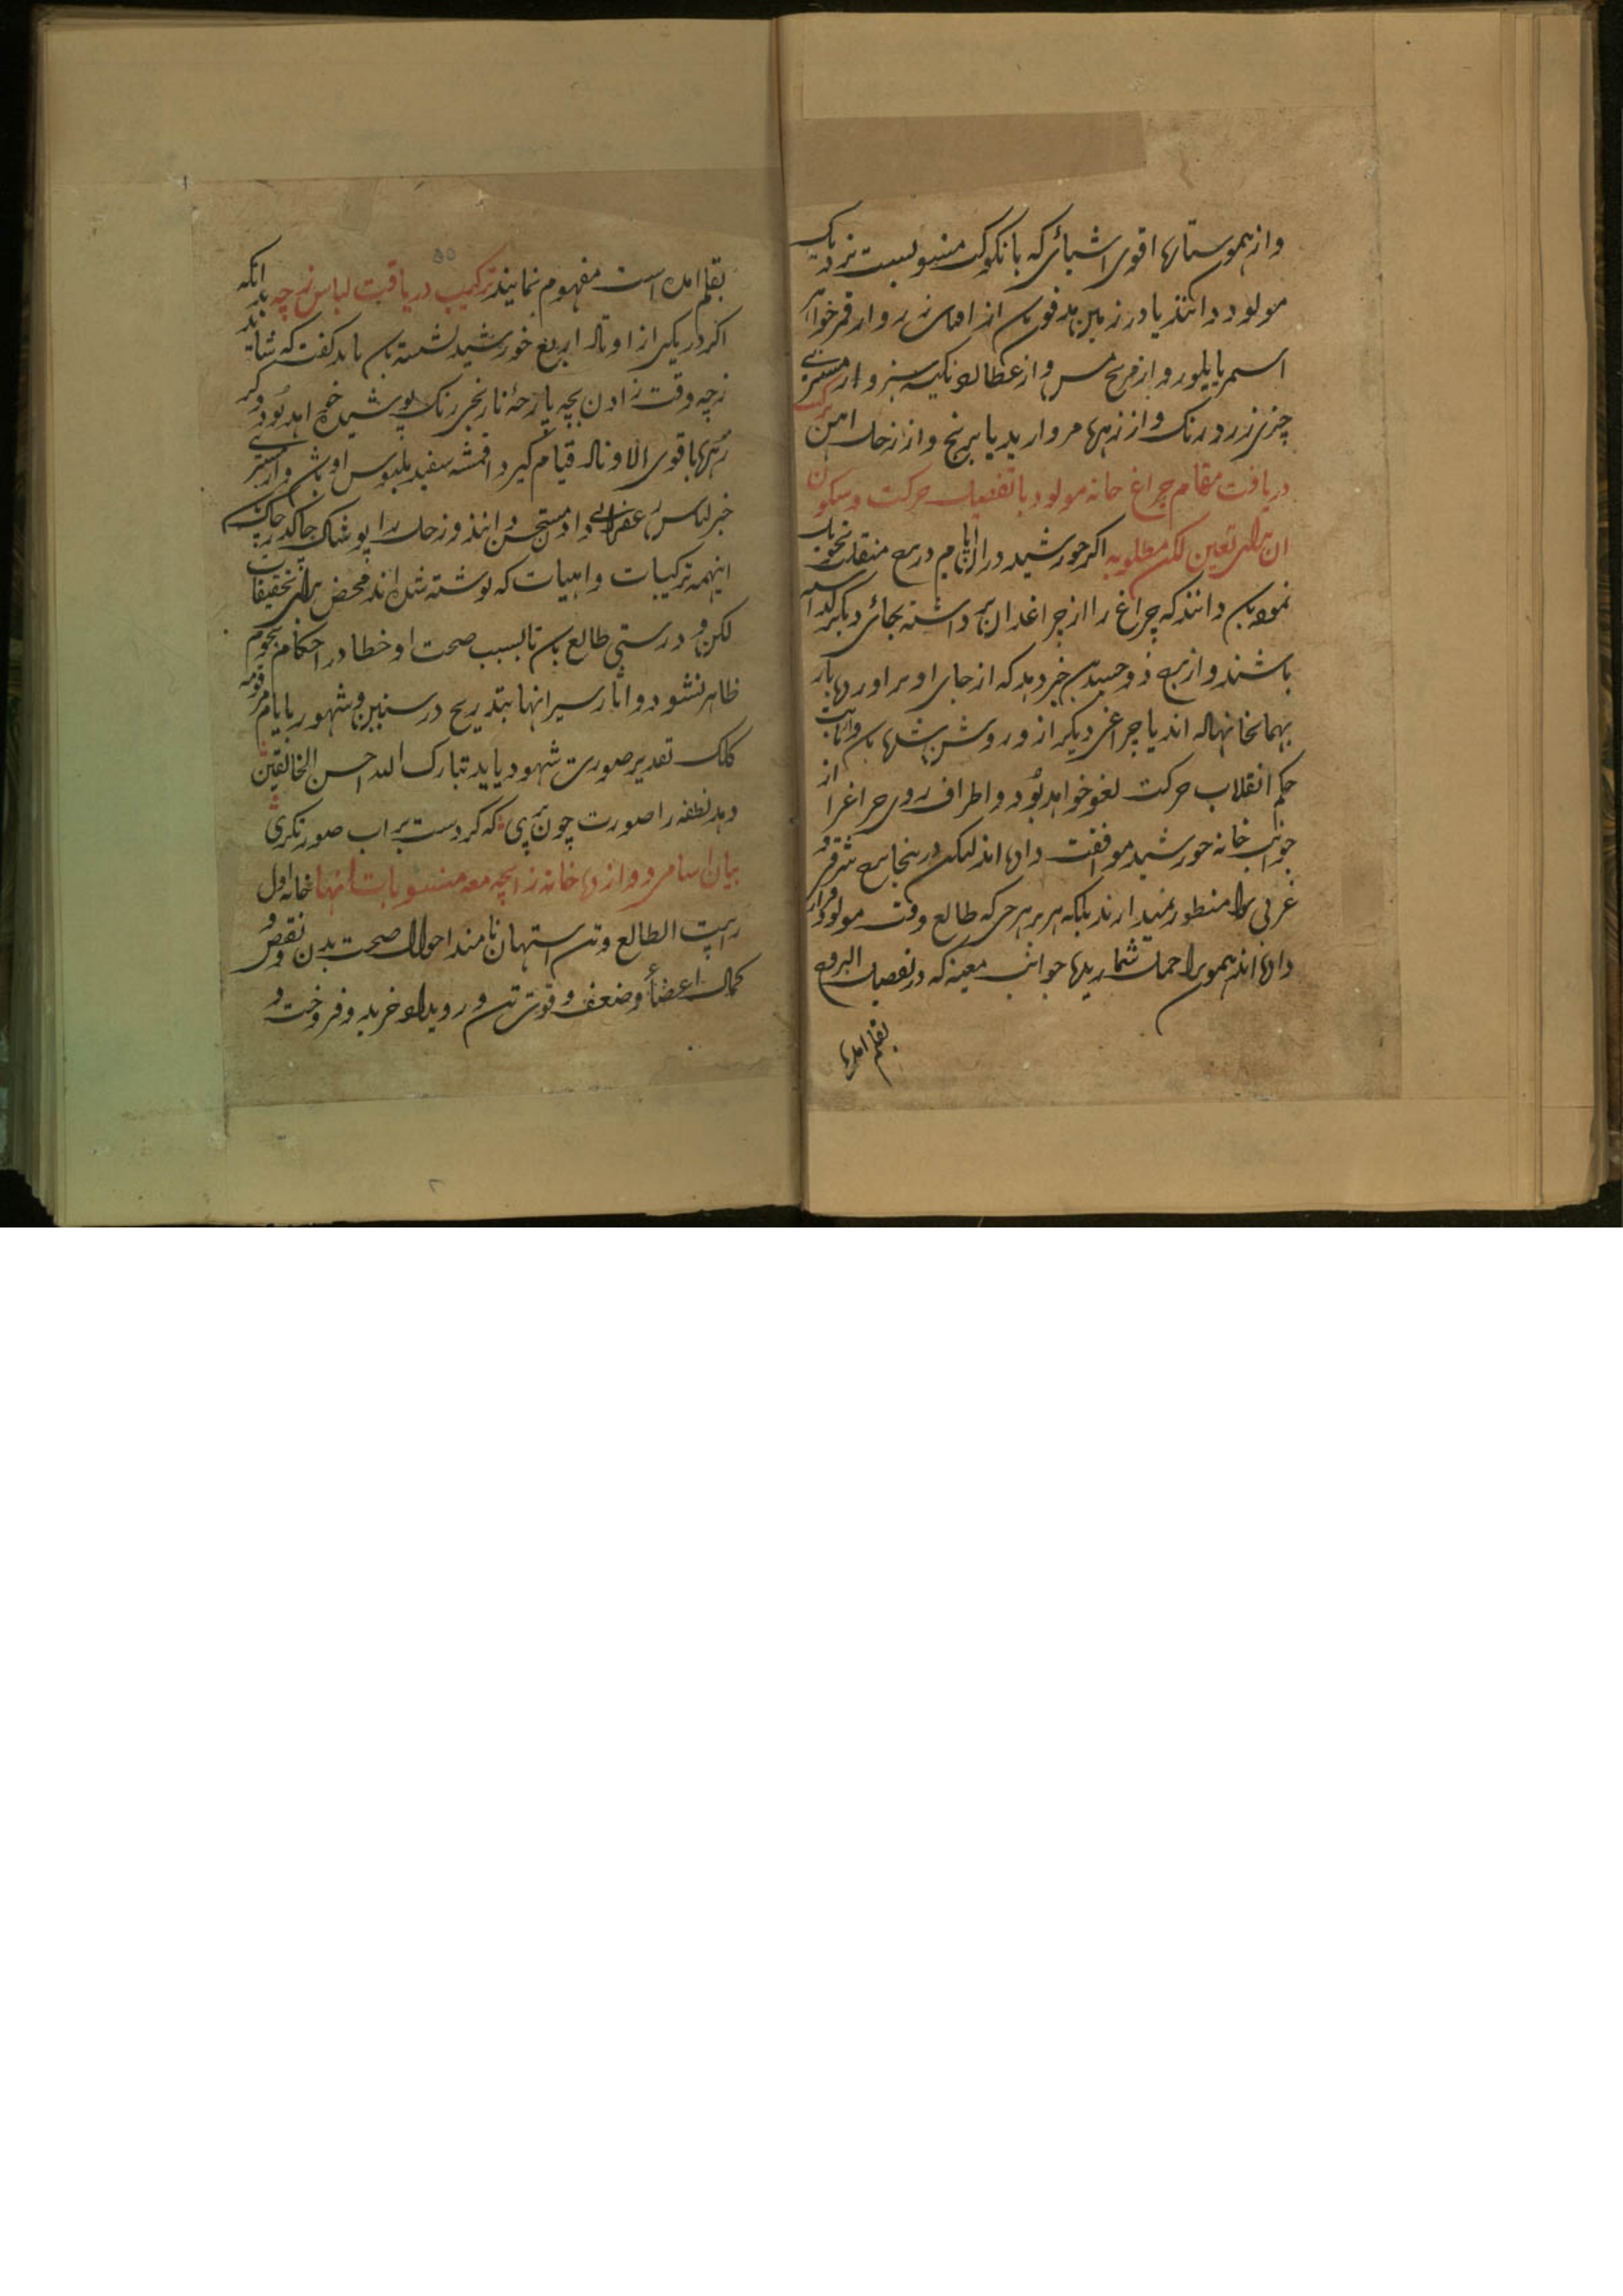 و از همو ستارها اقوی اشیائی که بانکوکب منسوبست نزدیک
مولود دانند یا در زمین مدفون از زر و از قمر خواهر
اسم یا بلور و از مریخ مس و از عطارد نکینه سبز و از مشتری
چیزی زرد رنک و از زهره مروارید یا برنج و از زحل اهن ترکیب
دریافت مقام چراغ خانه مولود با تفصیل حرکت و سکون
ان برای تعین لکن مطلوبه اکر خورشید در ان ایام در برج منقلب تحویل
نموده دانند که چراغ را از چراغدان برداشته بجای دیکر کذاشته
باشند و از برج ذوجسدین خبر دهد که از جای او براورده بار
بهمانجا نهاده اند یا چراغی دیکر از و روشن و از ثابت
حکم انقلاب حرکت لغو خواهد بود و اطراف روی چراغ را از
جوانب خانه خورشید موافقت داده اند لیکن درینجا برج شرقی و
غربی را منظور نمیدارند بلکه هر برجی که طالع وقت مولود قرار
داده اند همو را حمل شمارید جوانب معینه که در تفصیل البروج
بقلم امده
بقلم امده است مفهوم نمایند ترکیب دریافت لباس زچه بدانکه
اکر در یکی از اوتاد اربع خورشید نشسته باید کفت که شاید
زچه وقت زادن بچه پارچه نارنجی رنک پوشیده خواهد بود و کر
زهره با قوی الاوتاد قیام کیرد اقمشه سفید ملبوس او و از مشتری
خبر لباس زعفرانی داد مستحسن دانند و زحل را پوشاک چاک در چاکست
اینهمه ترکیبات واهیات که نوشته شده اند محض برای تحقیقات
لکن و درستی طالع تا بسبب صحت او خطا در احکام نجوم
ظاهر نشود و اثار سیر انها بتدریج در سنین و شهور یا ایام مرقومه
کلک تقدیر صورت شهود یابد تبارک الله احسن الخالقین
دهد نطفه را صورت چون پری که کردست بر اب صورتکری
بیان اسامی دوازده خانه زایچه معه منسوبات انها خانه اول
را بیت الطالع و تن استهان نامند احوال صحت بدن و نقص و
کمال اعضا و ضعف و قوت تن و رویداد خرید و فروخت و